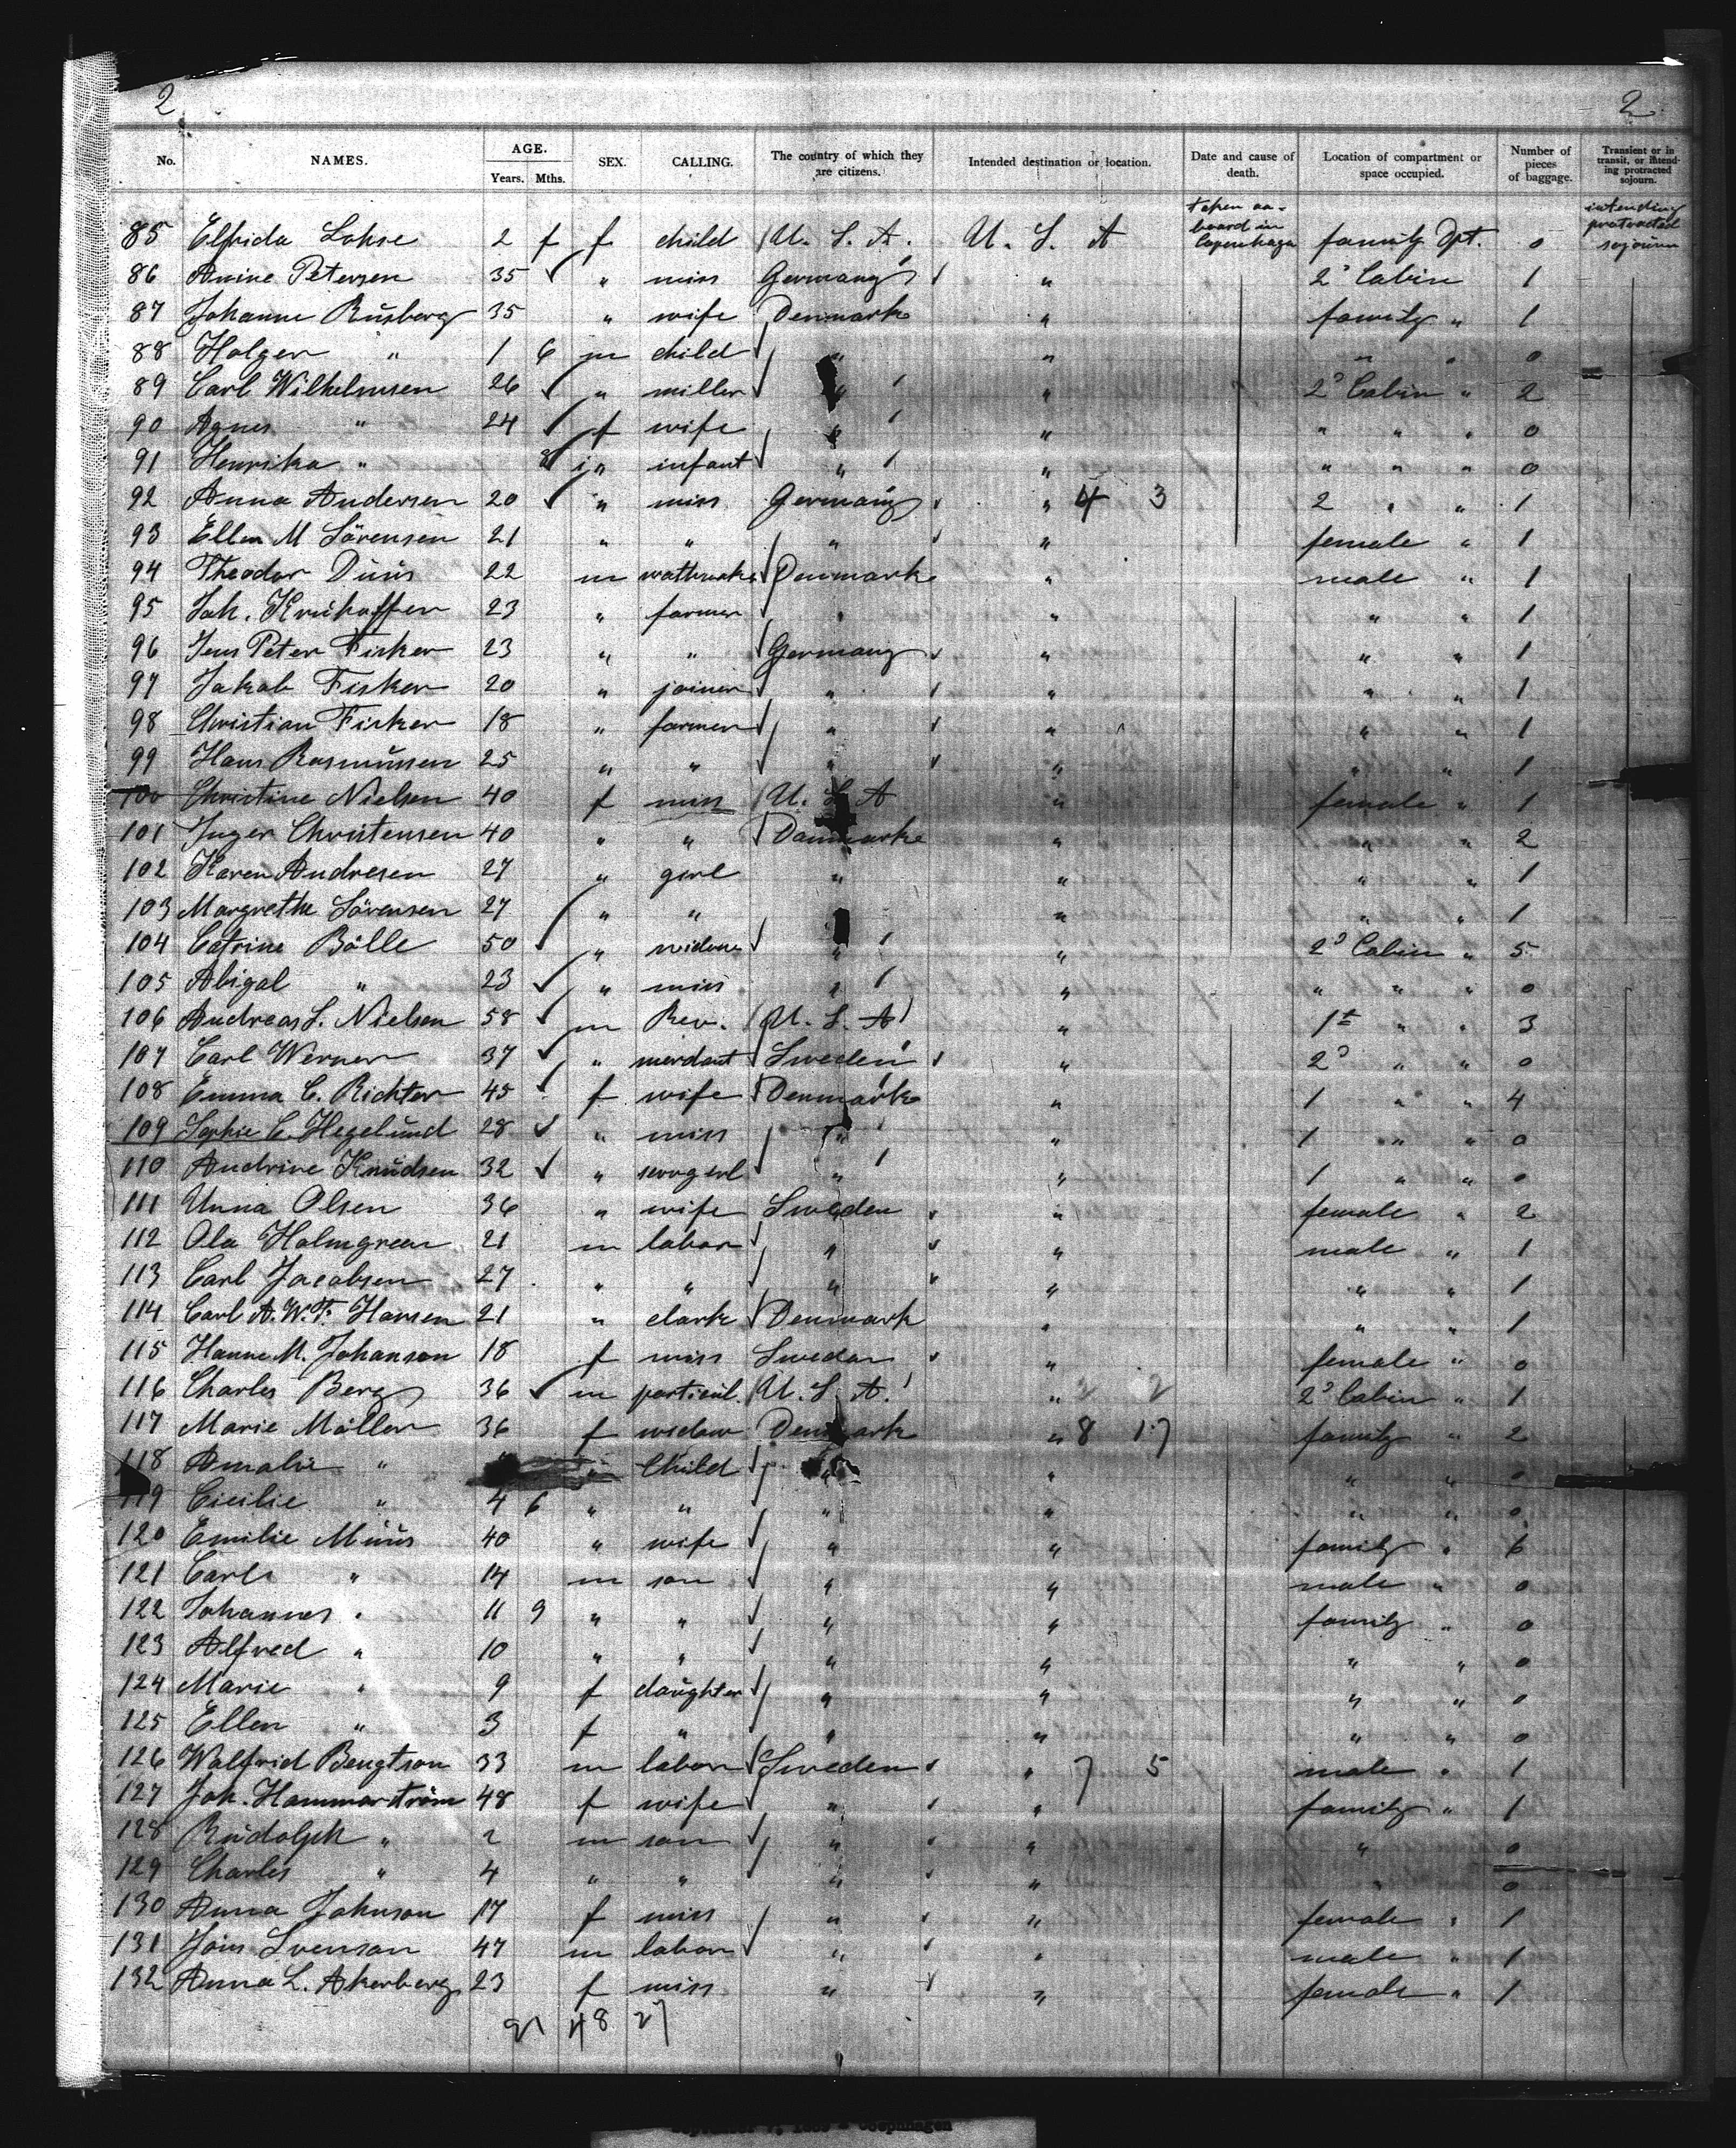 2 2
No. NAMES. AGE. Years. Mths. SEX. CALLING. The country of which they are citizens. Intended destination or location. Date and cause of death. Location of compartment or space occupied. Number of pieces of baggage. Transient or in transit, or intending protracted sojourn.
85 Elfrida Lohse 2 f f child U. S. A. U. S. A taken on board in Copenhagen family Dpt. 0 intending protracted sojourn
86 Anine Petersen 35 " miss Germany " 2d Cabin 1
87 Johanne Rüsberg 35 " wife Denmark " family " 1
88 Holger " 1 6 m child " " " " 0
89 Carl Wilhelmsen 26 " miller " " 2d Cabin " 2
90 Agnes " 24 f wife " " " " " 0
91 Henrika " 8 " infant " " " " " 0
92 Anna Andersen 20 " miss Germany " 4 3 2 " " 1
93 Ellen M Sörensen 21 " " " " female " 1
94 Theodor Düüs 22 m Denmark " male " 1
95 Joh. 23 " farmer " " " " 1
96 Jens Peter Fisker 23 " " Germany " " " 1
97 Jakob Fisker 20 " joiner " " " " 1
98 Christian Fisker 18 " farmer " " " " 1
99 Hans Rasmüssen 25 " " " " " " 1
100 Christine Nielsen 40 f miss U. S. A " female " 1
101 Inger Christensen 40 " " Danmark " " " 2
102 Karen Andresen 27 " girl " " " " 1
103 Margrethe Sörensen 27 " " " " " 1
104 Catrine Bölle 50 " widow " " 2d Cabin " 5
105 Abigal " 23 " miss " " " " " 0
106 Andreas S. Nielsen 58 m Rev. U. S. A " 1st " " 3
107 Carl Werner 37 " merchant Sweden " 2d " " 0
108 Emma C. Richter 45 f wife Denmark " 1 " " 4
109 Sophie C. Hegelünd 28 " miss " " 1 " " 0
110 Andrine Knüdsen 32 " servgerl " " 1 " " 0
111 Unna Olsen 36 " wife Sweden " female " 2
112 Ola Holmgreen 21 m labor " " male " 1
113 Carl Jacobsen 27 " " " " " " 1
114 Carl A. W. F. Hansen 21 " clark Denmark " " " 1
115 Hanne M. Johanson 18 f miss Sweden " female " 0
116 Charles Berg 36 m particül. U. S. A. " 2 2 2d Cabin " 1
117 Marie Möller 36 f widow Denmark " 8 17 family " 2
118 Amalie " " Child " " " " 0
119 Cicilie " 4 6 " " " " " " 0
120 Emilie Müüs 40 " wife " " family " 6
121 Carl " 14 m son " " male " 0
122 Johannes " 11 9 " " " " family " 0
123 Alfred " 10 " " " " " " 0
124 Marie " 9 f daüghter " " " " 0
125 Ellen " 3 f " " " " " 0
126 Walfrid Bengtson 33 m labor Sweden " 7 5 male " 1
127 Joh. Hammarström 48 f wife " " family " 1
128 Rüdolph " 2 m son " " " 0
129 Charles " 4 " " " " " 0
130 Anna Johnson 17 f miss " " female " 1
131 Jöns Svenson 47 m labor " " male " 1
132 Anna L. Akerberg 23 f miss " " female " 1
21 48 27